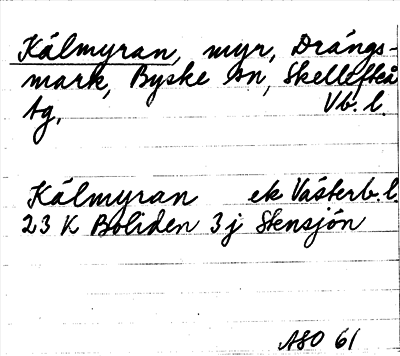 Kálmyran, myr, Drángs-
mark, Byske sn, Skellefteå
tg, Vb. l.
Kálmyran ek Västerb. l.
23 K Boliden 3 j Stensjön
ASO 61